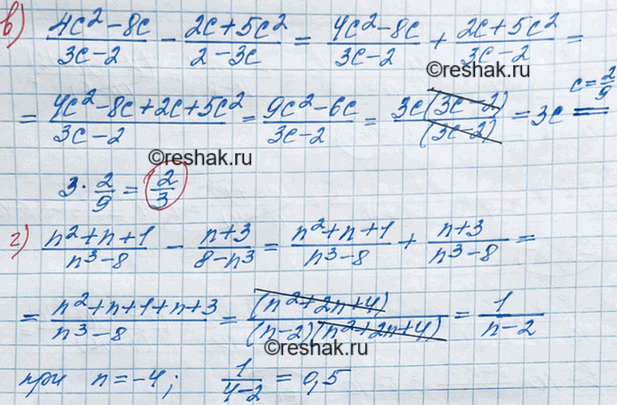 в) (4c² − 8c)/(3c − 2) − (2c + 5c²)/(2 − 3c) = (4c² − 8c)/(3c − 2) + (2c + 5c²)/(3c − 2) =
©reshak.ru
= (4c² − 8c + 2c + 5c²)/(3c − 2) = (9c² − 6c)/(3c − 2) = 3c(3c − 2)/(3c − 2) = 3c = c = 2/9
©reshak.ru
3 · 2/9 = 2/3
г) (n² + n + 1)/(n³ − 8) − (n + 3)/(8 − n³) = (n² + n + 1)/(n³ − 8) + (n + 3)/(n³ − 8) =
©reshak.ru
= (n² + n + 1 + n + 3)/(n³ − 8) = (n² + 2n + 4)/((n − 2)(n² + 2n + 4)) = 1/(n − 2)
©reshak.ru
при n = −4; 1/(4 − 2) = 0,5